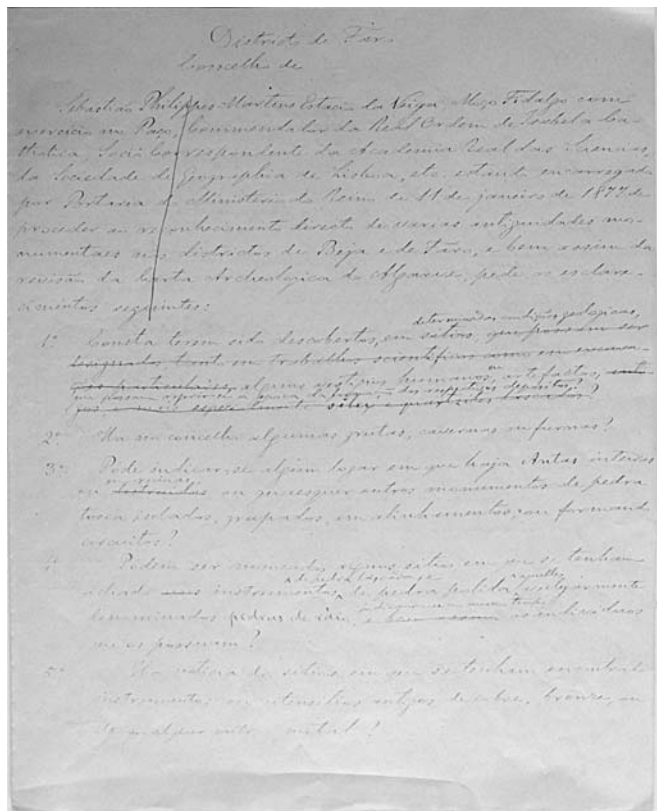 Districto de Faro
Concelho de
Sebastião Philippes Martins Estacio da Veiga, Moço Fidalgo com
exercicio no Paço, Commendador da Real Ordem de Izabel a Ca-
tholica, Socio Correspondente da Academia Real das Sciencias,
da Sociedade de Geographia de Lisboa, etc. estando encarregado
por Portaria do Ministerio do Reino de 11 de janeiro de 1877 de
proceder ao reconhecimento directo de varias antiguidades mo-
numentaes nos districtos de Beja e de Faro, e bem assim da
revisão da Carta Archeologica do Algarve, pede os esclare-
cimentos seguintes:
determinadas condições geologicas,
1º Consta terem sido descobertos, em sitios, que possam ser
designados tanto em trabalhos scientificos como em
particulares, alguns vestigios humanos, ou artefactos,
2º Ha no concelho algumas grutas, cavernas ou furnas?
3º Pode indicar-se algum logar em que haja Antas inteiras
em ruinas
ou destruidas ou quaesquer outros monumentos de pedra
tosca isolados, grupados, em alinhamentos, ou formando
circuitos?
4º Podem ser nomeados alguns sitios em que se tenham
de pedra lascada e aquelles
achado instrumentos de pedra polida, vulgarmente
denominados pedras de raio, os individuos
que os possuam?
5º Ha noticia de sitios em que se tenham encontrado
instrumentos ou utensilios antigos de cobre, bronze, ou
de algum outro metal?